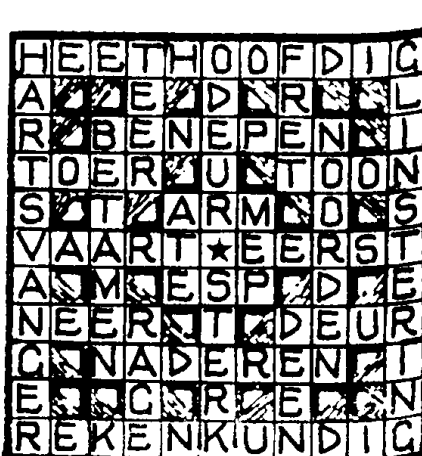 HEETHOOFDIG
A E D R L
R BENEPEN I
TOER U TOON
S T ARM O S
VAART ★ EERST
A M ESP D E
NEER T DEUR
G NADEREN I
E G R E N
REKENKUNDIG